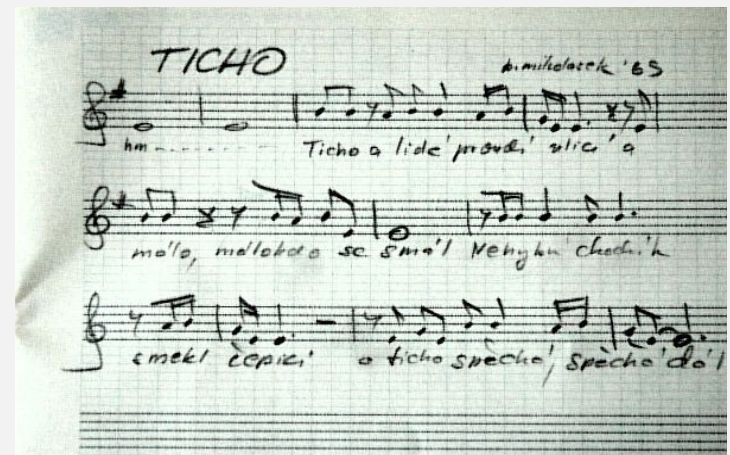 TICHO
p. miholacek '69
hm
Ticho a lidé proudí ulicí a
málo, málokdo se smál Nehybn chodník
smekl čepici a ticho spěchá, spěchá dál